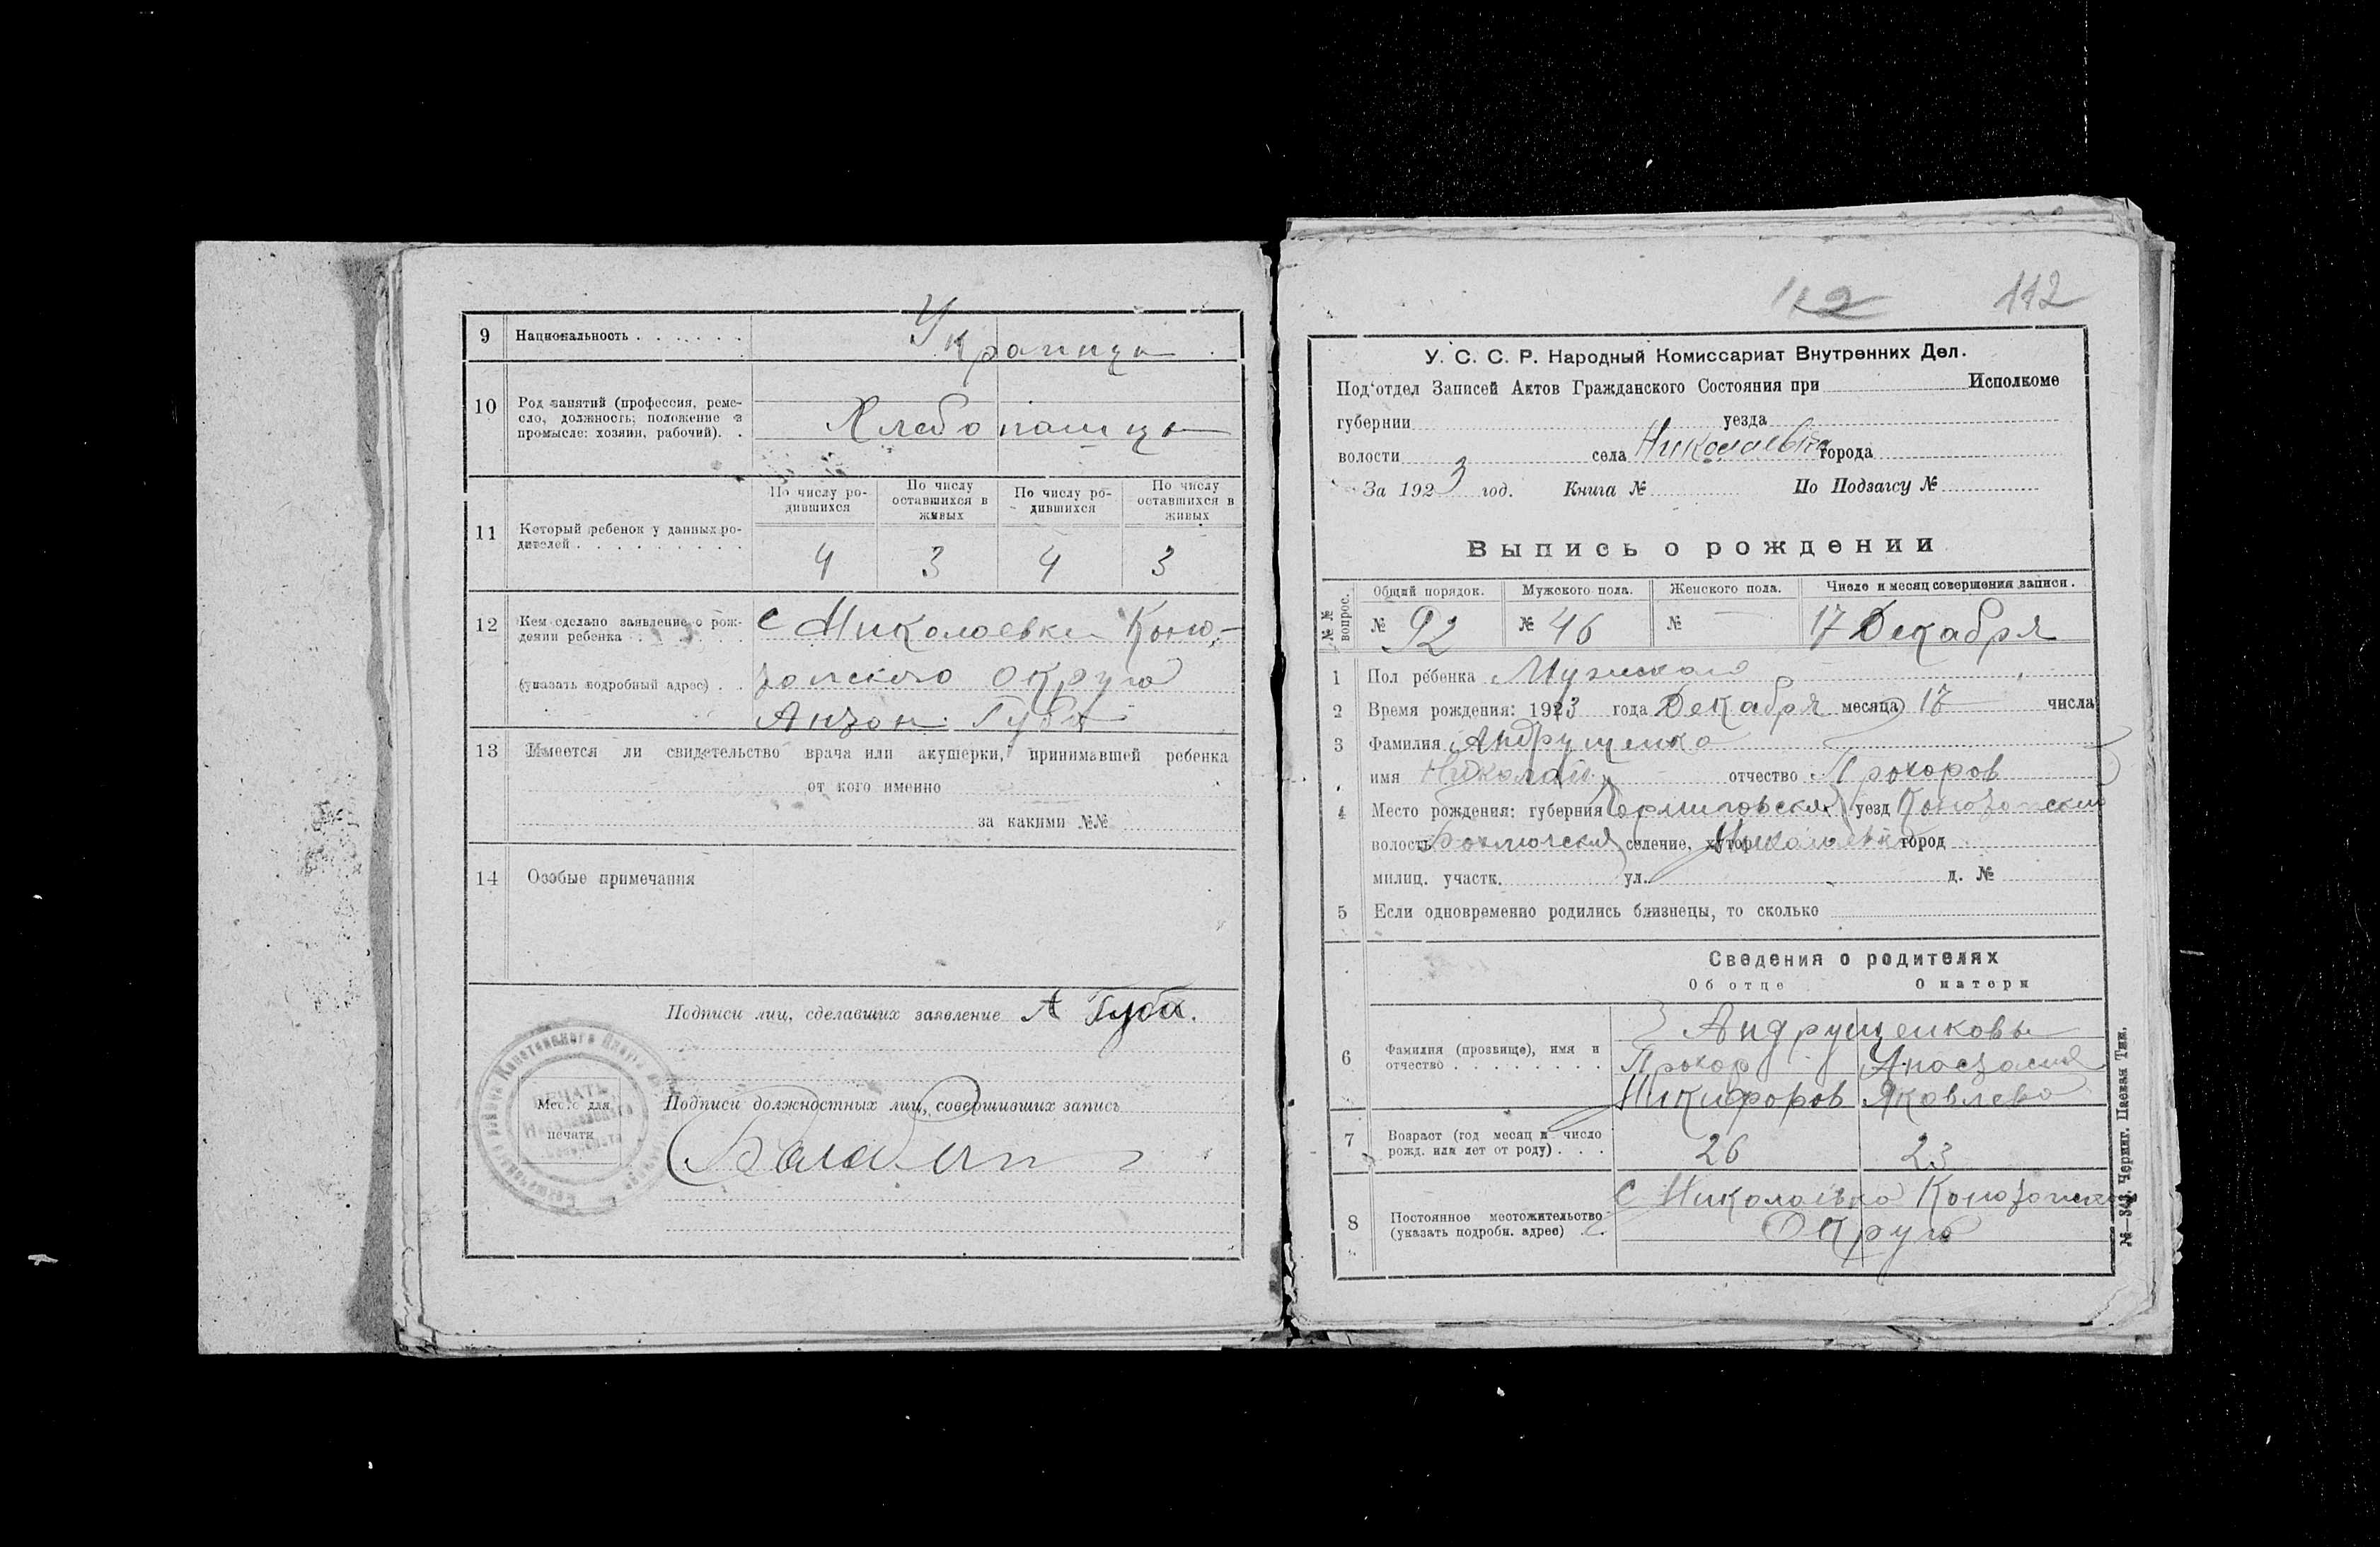 9 Национальность . . . . . . . Украинцы
10 Род занятий (профессия, реме-
сло, должность; положение в
промысле: хозяин, рабочий). .
Хлебопашцы
11 Который ребенок у данных ро-
дителей . . . . . . . . .
По числу ро-
дившихся
По числу
оставшихся в
живых
По числу ро-
дившихся
По числу
оставшихся в
живых
4 3 4 3
12 Кем сделано заявление о рож-
дении ребенка . . . . .
(указать подробный адрес) . .
с Николаевки Коно-
топского округа
Антон Губа
13 Имеется ли свидетельство врача или акушерки, принимавшей ребенка
от кого именно
за какими №№
14 Особые примечания
Подписи лиц, сделавших заявление А Губа.
Место для
печати
ПЕЧАТЬ
Подписи должностных лиц, совершивших запись
112 112
У. С. С. Р. Народный Комиссариат Внутренних Дел.
Под‘отдел Записей Актов Гражданского Состояния при Исполкоме
губернии уезда
волости села Николаевка города
За 1923 год. Книга № По Подзагсу №
Выпись о рождении
№№ вопрос.
Общий порядок. Мужского пола. Женского пола. Число и месяц совершения записи.
№ 92 № 46 № — 17 Декабря
1 Пол ребенка Мужской
2 Время рождения: 1923 года Декабря месяца 17 числа
3 Фамилия Андрущенко
имя Николай отчество Прохоров
4 Место рождения: губерния Черниговская уезд Конотопский
волость селение, хутор Николаевка город
милиц. участк. ул. д. №
5 Если одновременно родились близнецы, то сколько
Сведения о родителях
Об отце О матери
6 Фамилия (прозвище), имя и
отчество . . . . . . . .
Андрущенковы
Прохор Анастасия
Никифоров Яковлева
7 Возраст (год месяц и число
рожд. или лет от роду) . . .
26 23
8 Постоянное местожительство
(указать подробн. адрес)
С Николаевка Конотопского
Округа
№—343. Черниг. Цневая Тип.